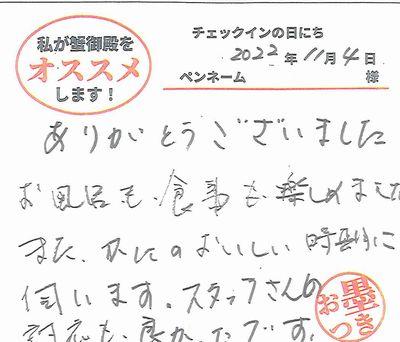 私が蟹御殿を
オススメ
します!
チェックインの日にち
2022年11月4日
ペンネーム 様
ありがとうございました
お風呂も、食事も楽しめました
また、かにのおいしい時期に
伺います。スタッフさんの
対応も良かったです。
お墨つき